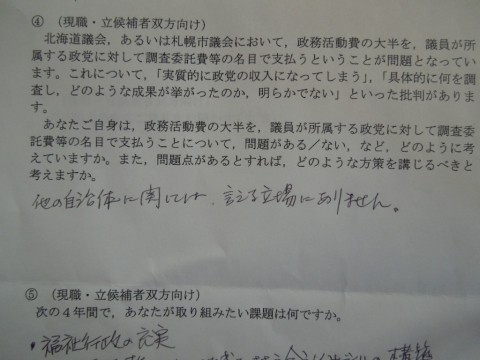 ④ (現職・立候補者双方向け)
北海道議会，あるいは札幌市議会において，政務活動費の大半を，議員が所
属する政党に対して調査委託費等の名目で支払うということが問題となってい
ます。これについて，「実質的に政党の収入になってしまう」，「具体的に何を調
査し，どのような成果が挙がったのか，明らかでない」といった批判がありま
す。
あなたご自身は，政務活動費の大半を，議員が所属する政党に対して調査委
託費等の名目で支払うことについて，問題がある／ない，など，どのように考
えていますか。また，問題点があるとすれば，どのような方策を講じるべきと
考えますか。
他の自治体に関しては、言える立場にありません。
⑤ (現職・立候補者双方向け)
次の４年間で，あなたが取り組みたい課題は何ですか。
・福祉行政の充実